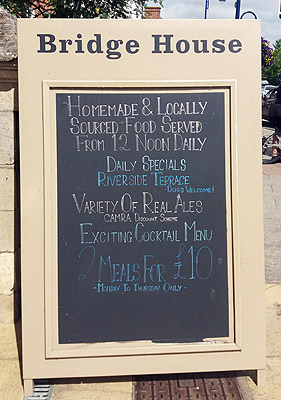 Bridge House
Homemade & Locally
Sourced Food Served
From 12 Noon Daily
Daily Specials
Riverside Terrace
Dogs Welcome!
Variety Of Real Ales
CAMRA Discount Scheme
Exciting Cocktail Menu
2 Meals For £10
- Monday To Thursday Only -